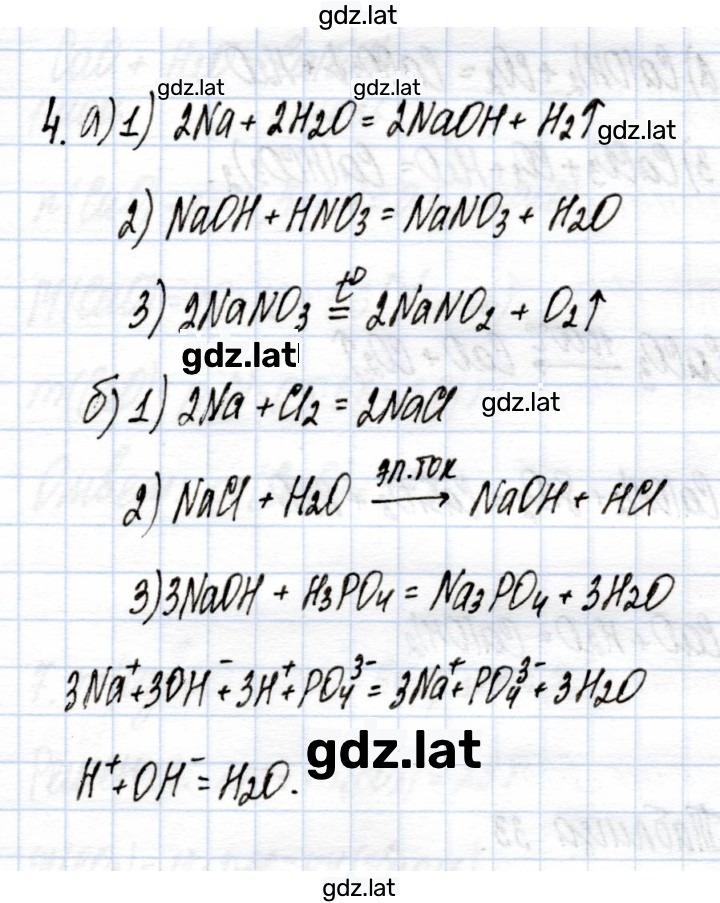 gdz.lat
gdz.lat gdz.lat
4. а) 1) 2Na + 2H₂O = 2NaOH + H₂↑ gdz.lat
2) NaOH + HNO₃ = NaNO₃ + H₂O
3) 2NaNO₃ =(t°) 2NaNO₂ + O₂↑
gdz.lat
б) 1) 2Na + Cl₂ = 2NaCl gdz.lat
2) NaCl + H₂O —эл.ток→ NaOH + HCl
3) 3NaOH + H₃PO₄ = Na₃PO₄ + 3H₂O
3Na⁺ + 3OH⁻ + 3H⁺ + PO₄³⁻ = 3Na⁺ + PO₄³⁻ + 3H₂O
gdz.lat
H⁺ + OH⁻ = H₂O.
gdz.lat